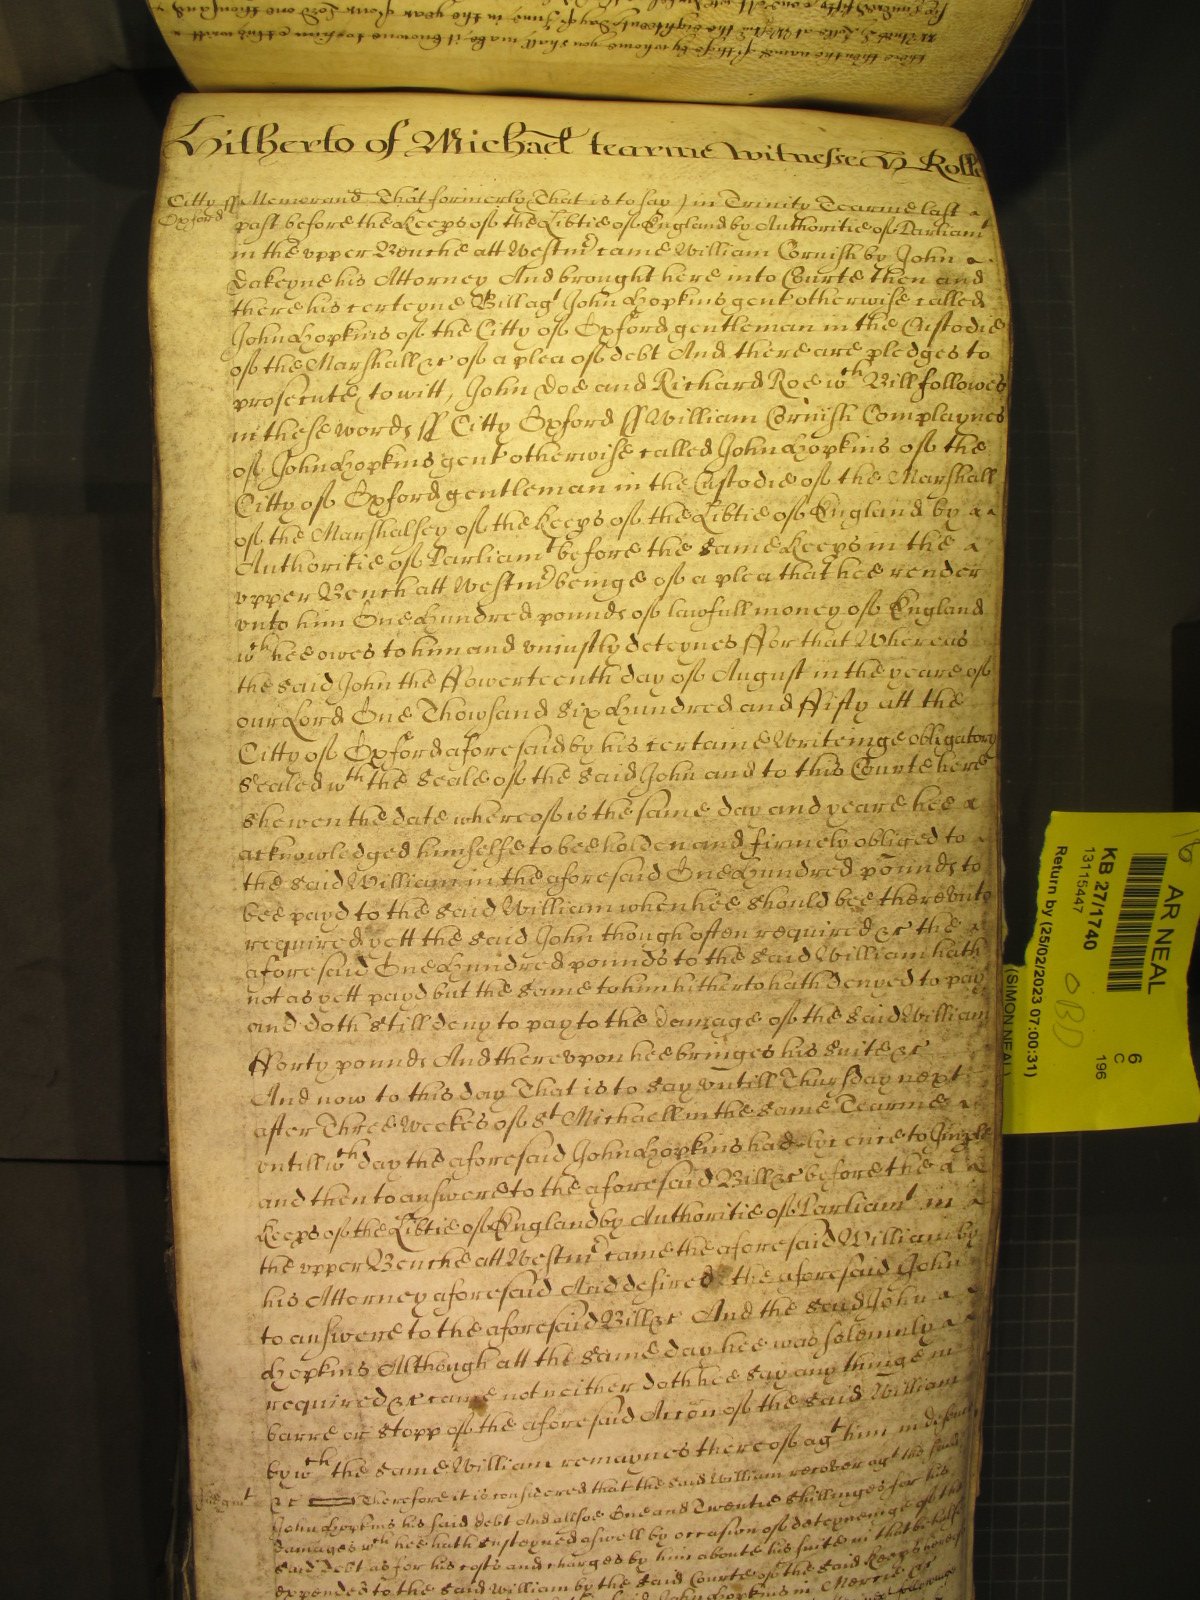 there then the names of those by whome you shall make it knowne to him & this writt
Hitherto of Michaell tearme Witnesse H Rolle
Citty ss Memorand That formerly That is to say / in Trinity Tearme last
Oxford
past before the Keeps of the Libtie of England by Authoritie of Parliamt
in the upper Benche att Westmr came William Cornish by John
Dakeyne his Attorney And brought here into Courte then and
there his certeyne Bill agt John Hopkins gent otherwise called
John Hopkins of the Citty of Oxford gentleman in the Custodie
of the Marshall &c of a plea of debt And there are pledges to
prosecute, to witt, John Doe and Richard Roe wch Bill followes
in these words ss Citty Oxford ss William Cornish Complaynes
of John Hopkins gent otherwise called John Hopkins of the
Citty of Oxford gentleman in the Custodie of the Marshall
of the Marshalsey of the Keeps of the Libtie of England by
Authoritie of Parliamt before the same Keeps in the
upper Bench att Westmr beinge of a plea that hee render
unto him One Hundred pounds of lawfull money of England
wch hee owes to him and uniustly deteynes ffor that Whereas
the said John the ffowerteenth day of August in the yeare of
our Lord One Thowsand Six Hundred and ffifty att the
Citty of Oxford aforesaid by his certaine Writeinge obligatory
Sealed wth the Seale of the said John and to this Courte here
shewen the date whereof is the same day and yeare hee
acknowledged himselfe to bee holden and firmely obliged to
the said William in the aforesaid One Hundred pounds to
bee payd to the said William when hee should bee thereunto
required yett the said John though often required &c the
aforesaid One Hundred pounds to the said William hath
not as yett payd but the same to him hitherto hath denyed to pay
and doth still deny to pay to the damage of the said William
fforty pounds And thereupon hee bringes his suite &c
And now to this day That is to say untill Thursday next
after Three Weekes of St Michaell in the same Tearme
untill wch day the aforesaid John Hopkins had lycence to Imple
and then to answere to the aforesaid Bill &c before the
Keeps of the Libtie of England by Authoritie of Parliamt in
the upper Benche att Westmr came the aforesaid William by
his Attorney aforesaid And desired the aforesaid John
to answere to the aforesaid Bill &c And the said John
Hopkins Although att the same day hee was solemnly
required &c came not neither doth hee say any thinge in
barre or stopp of the aforesaid Accon of the said William
by wch the same William remaynes thereof agt him
Judgmt &c Therefore it is considered that the said William recover agt the said
John Hopkins his said debt And allsoe One and Twentie Shillinges for his
damages wch hee hath susteyned aswell by occasion of deteyneinge of the
said debt as for his costs and charges by him about his suite in that behalfe
expended to the said William by the said Courte of the said Keeps
John Hopkins in Mercie &c
AR NEAL
KB 27/1740
13115447
Return by (25/02/2023 07:00:31)
(SIMON NEAL)
6
C
196
OBD